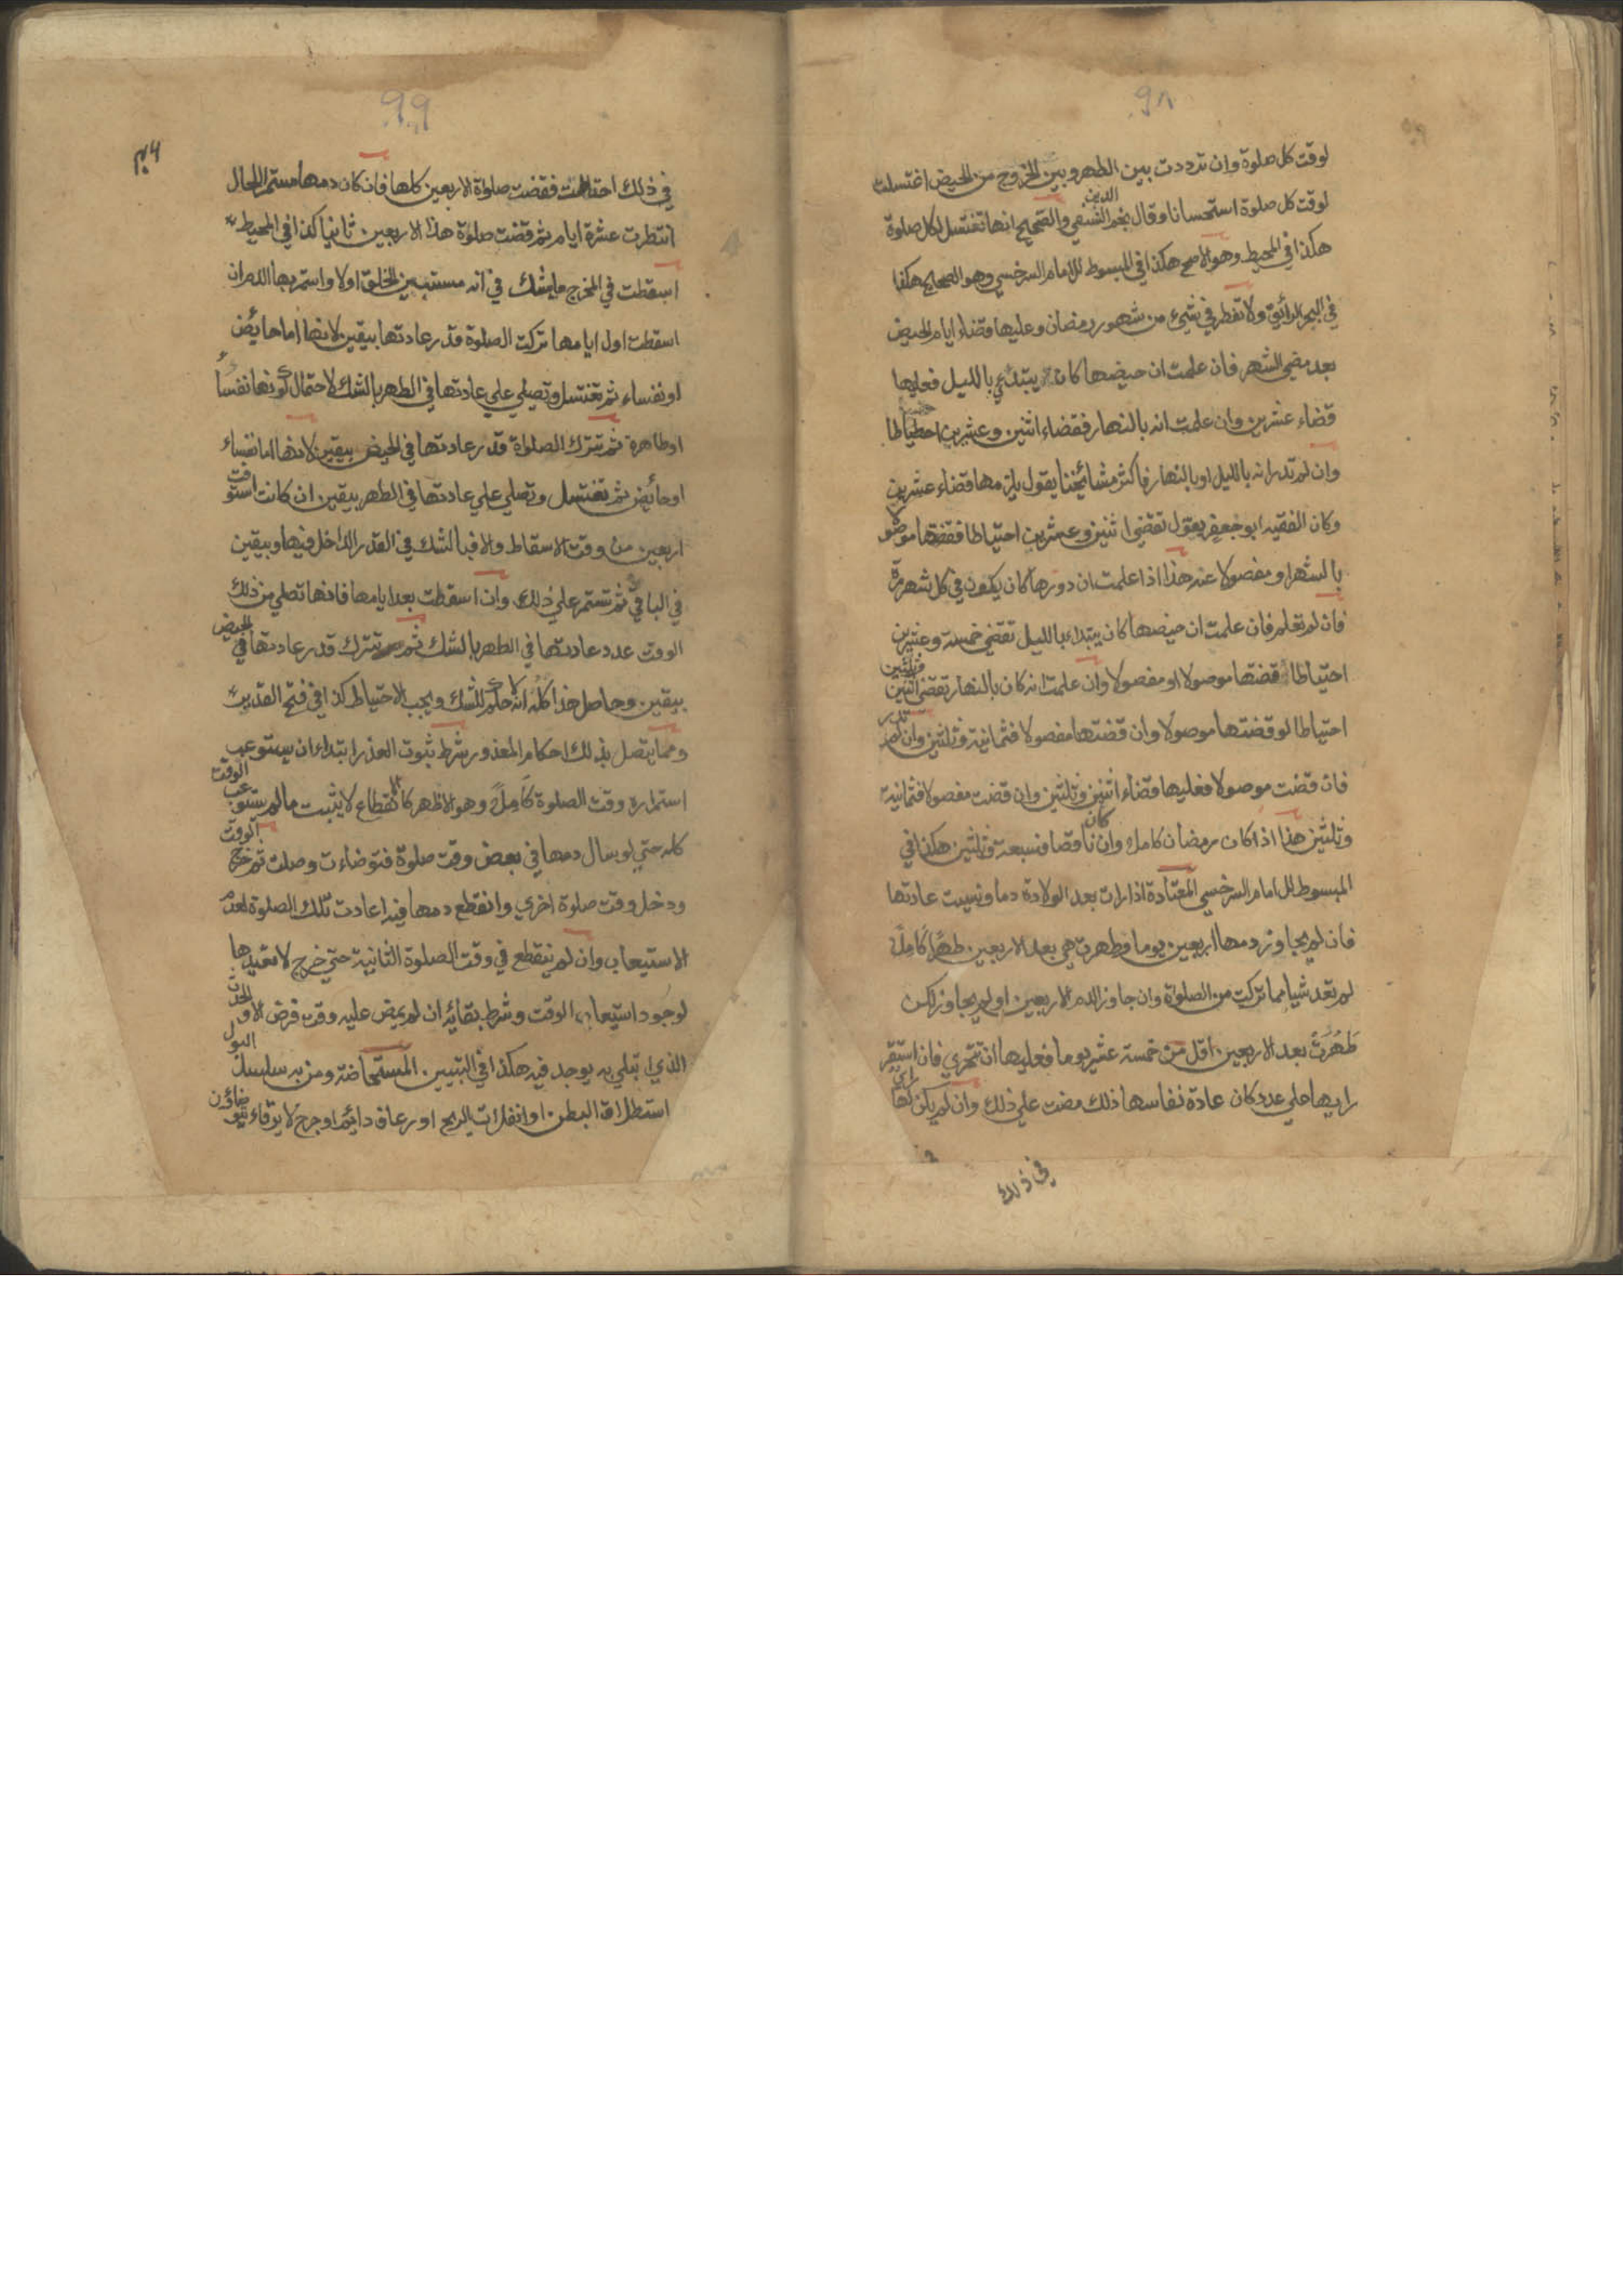 ٩٨
لوقت كل صلوة وان ترددت بين الطهر وبين الخروج من الحيض اغتسلت
لوقت كل صلوة استحسانا وقال نجم الدين النسفي والصحيح انها تغتسل لكل صلوة
هكذا في المحيط وهو الاصح هكذا في المبسوط للامام السرخسي وهو الصحيح هكذا
في البحر الرائق ولا تفطر في شيء من شهور رمضان وعليها قضاء ايام الحيض
بعد مضي الشهر فان علمت ان حيضها كان يبتدئ بالليل فعليها
قضاء عشرين وان علمت انه بالنهار فقضاء اثنين وعشرين احتياطا
وان لم تدر انه بالليل او بالنهار فاكثر مشائخنا يقول يلزمها قضاء عشرين
وكان الفقيه ابو جعفر يقول تقضي اثنين وعشرين احتياطا فقضتها موصولا
بالشهر او مفصولا عنه هذا اذا علمت ان دورها كان يكون في كل شهر مرة
فان لم تعلم فان علمت ان حيضها كان يبتداء بالليل تقضي خمسة وعشرين
احتياطا قضتها موصولا او مفصولا وان علمت انه كان بالنهار تقضي اثنين وثلثين
احتياطا لو قضتها موصولا وان قضتها مفصولا فثمانية وثلثين وان لم تدر
فان قضت موصولا فعليها قضاء اثنين وثلثين وان قضت مفصولا فثمانية
وثلثين هذا اذا كان رمضان كاملا وان كان ناقصا فسبعة وثلثين هكذا في
المبسوط للامام السرخسي المعتادة اذا رات بعد الولادة دما ونسيت عادتها
فان لم يجاوز دمها اربعين يوما وطهرت هي بعد الاربعين طهرا كاملا
لم تعد شيا مما تركت من الصلوة وان جاوز الدم الاربعين او لم يجاوز لكن
طهرت بعد الاربعين اقل من خمسة عشر يوما فعليها ان تتحري فان استقر
رايها علي عدد كان عادة نفاسها ذلك مضت علي ذلك وان لم يكن لها راي
في ذلك
٩٩
في ذلك احتاطت فقضت صلوة الاربعين كلها فان كان دمها مستمر اللحال
انتظرت عشرة ايام ثم قضت صلوة هذا الاربعين ثانيا كذا في المحيط
اسقطت في المخرج ما يشك في انه مستبين الخلق اولا واستمر بها الدم ان
اسقطت اول ايامها تركت الصلوة قدر عادتها بيقين لانها اما حايض
او نفساء ثم تغتسل وتصلي علي عادتها في الطهر بالشك لاحتمال كونها نفساء
او طاهرة ثم تترك الصلوة قدر عادتها في الحيض بيقين لانها اما نفساء
او حائض ثم تغتسل وتصلي علي عادتها في الطهر بيقين ان كانت استوفت
اربعين من وقت الاسقاط والا فبالشك في القدر الداخل فيها وبيقين
في الباقي ثم تستمر علي ذلك وان اسقطت بعد ايامها فانها تصلي من ذلك
الوقت عدد عادتها في الطهر بالشك ثم تترك قدر عادتها في الحيض
بيقين وحاصل هذا كله انه لا حكم للشك ويجب الاحتياط كذا في فتح القدير
ومما يتصل بذلك احكام المعذور شرط ثبوت العذر ابتداء ان يستوعب
استمراره وقت الصلوة كاملا وهو الاظهر كالانقطاع لا يثبت ما لم يستوعب الوقت
كله حتي لو سال دمها في بعض وقت صلوة فتوضاءت وصلت ثم خرج الوقت
ودخل وقت صلوة اخري وانقطع دمها فيه اعادت تلك الصلوة لعدم
الاستيعاب وان لم ينقطع في وقت الصلوة الثانية حتي خرج لا تعيدها
لوجود استيعاب الوقت وشرط بقائه ان لم يمض عليه وقت فرض الا والحدث
الذي ابتلي به يوجد فيه هكذا في التبيين المستحاضة ومن به سلس البول
استطلاق البطن او انفلات الريح او رعاف دائم او جرح لا يرقاء يتوضاؤن